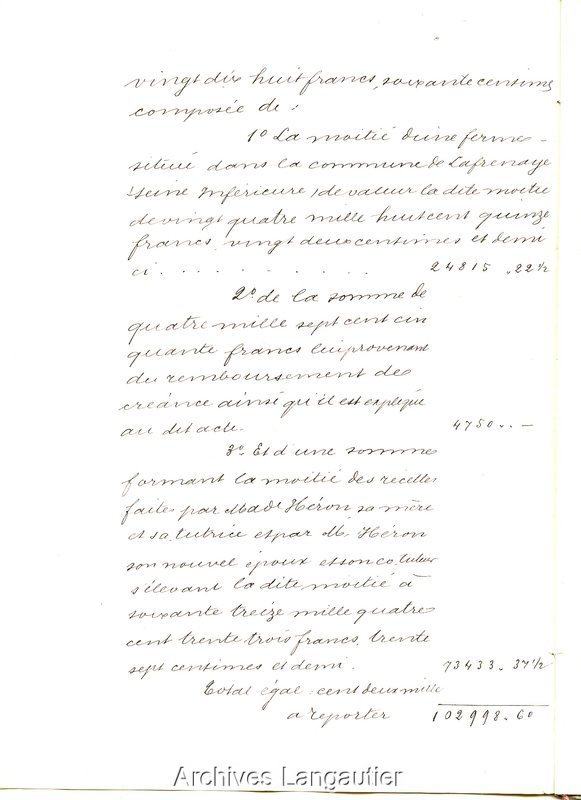 vingt dix huit francs, soixante centimes
composée de :
1º La moitié d'une ferme -
située dans la commune de Lafrenaye
(Seine Inférieure) de valeur la dite moitié
de vingt quatre mille huit cent quinze
francs, vingt deux centimes et demi
ci . . . . . . . . . . 24815 . 22 ½
2º de la somme de
quatre mille sept cent cin
quante francs lui provenant
du remboursement de
créance ainsi qu'il est expliqué
au dit acte. 4750 . . —
3º. Et d'une somme
formant la moitié des recettes
faites par Made Héron sa mère
et sa tutrice et par M. Héron
son nouvel époux et son co. tuteur
s'élevant la dite moitié à
soixante treize mille quatre
cent trente trois francs, trente
sept centimes et demi. 73433 . 37 ½
Total égal : cent deux mille
a reporter 102998 . 60
Archives Langautier